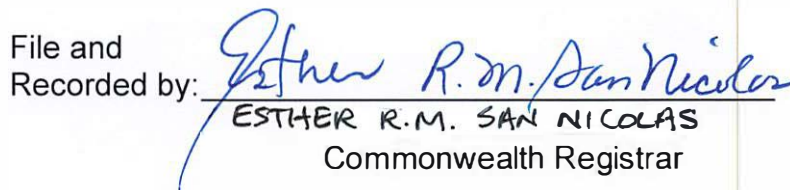 File and
Recorded by: Esther R.M. San Nicolas
ESTHER R.M. SAN NICOLAS
Commonwealth Registrar